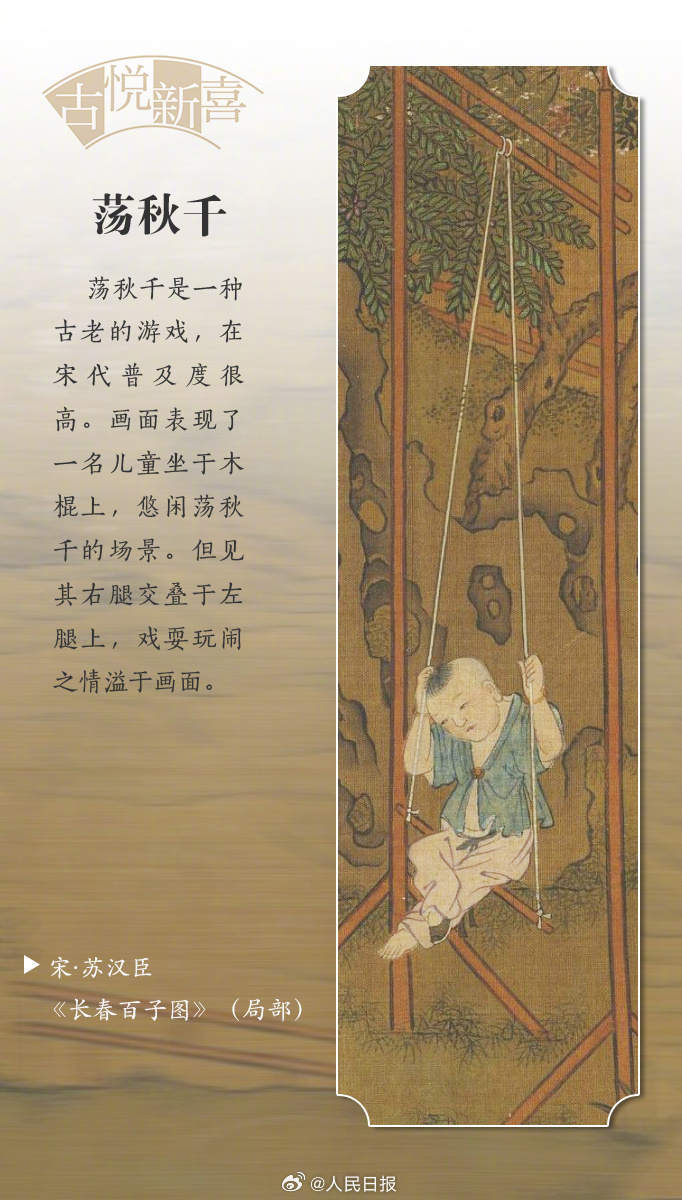 古悦新喜
荡秋千
荡秋千是一种
古老的游戏，在
宋代普及度很
高。画面表现了
一名儿童坐于木
棍上，悠闲荡秋
千的场景。但见
其右腿交叠于左
腿上，戏耍玩闹
之情溢于画面。
宋·苏汉臣
《长春百子图》（局部）
@人民日报